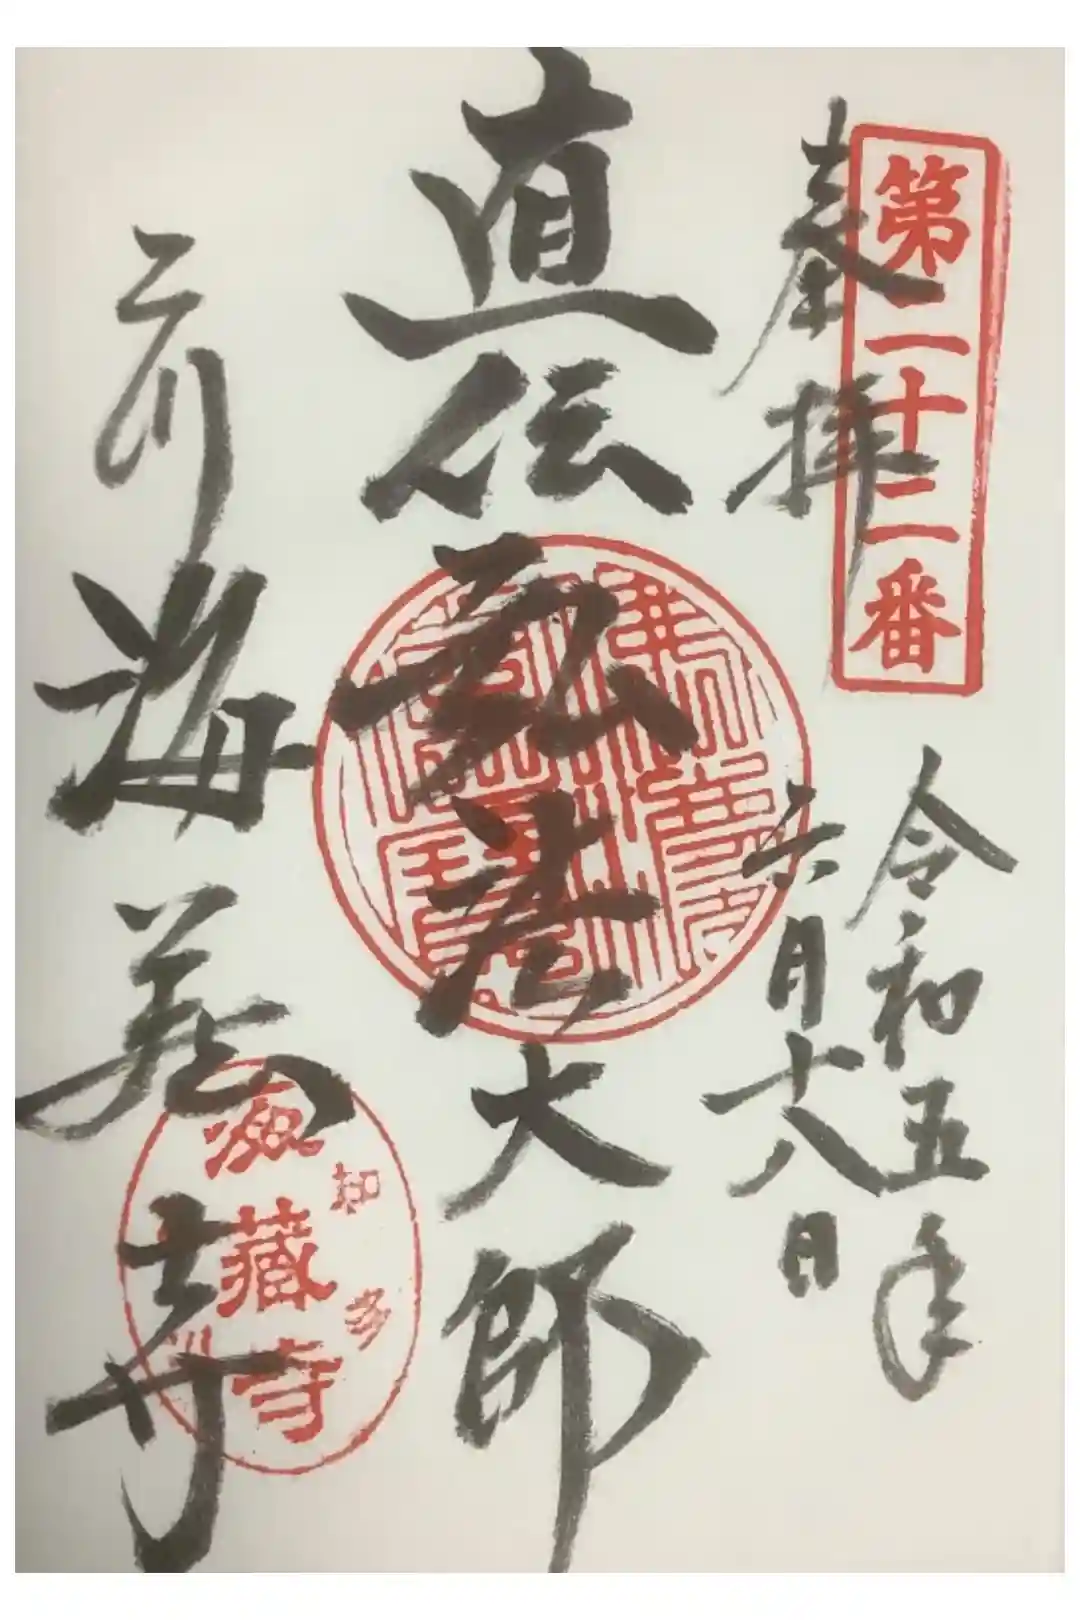 第二十二番
奉拝
令和五年
六月十八日
直伝弘法大師
三川
海蔵寺
知多
海藏寺